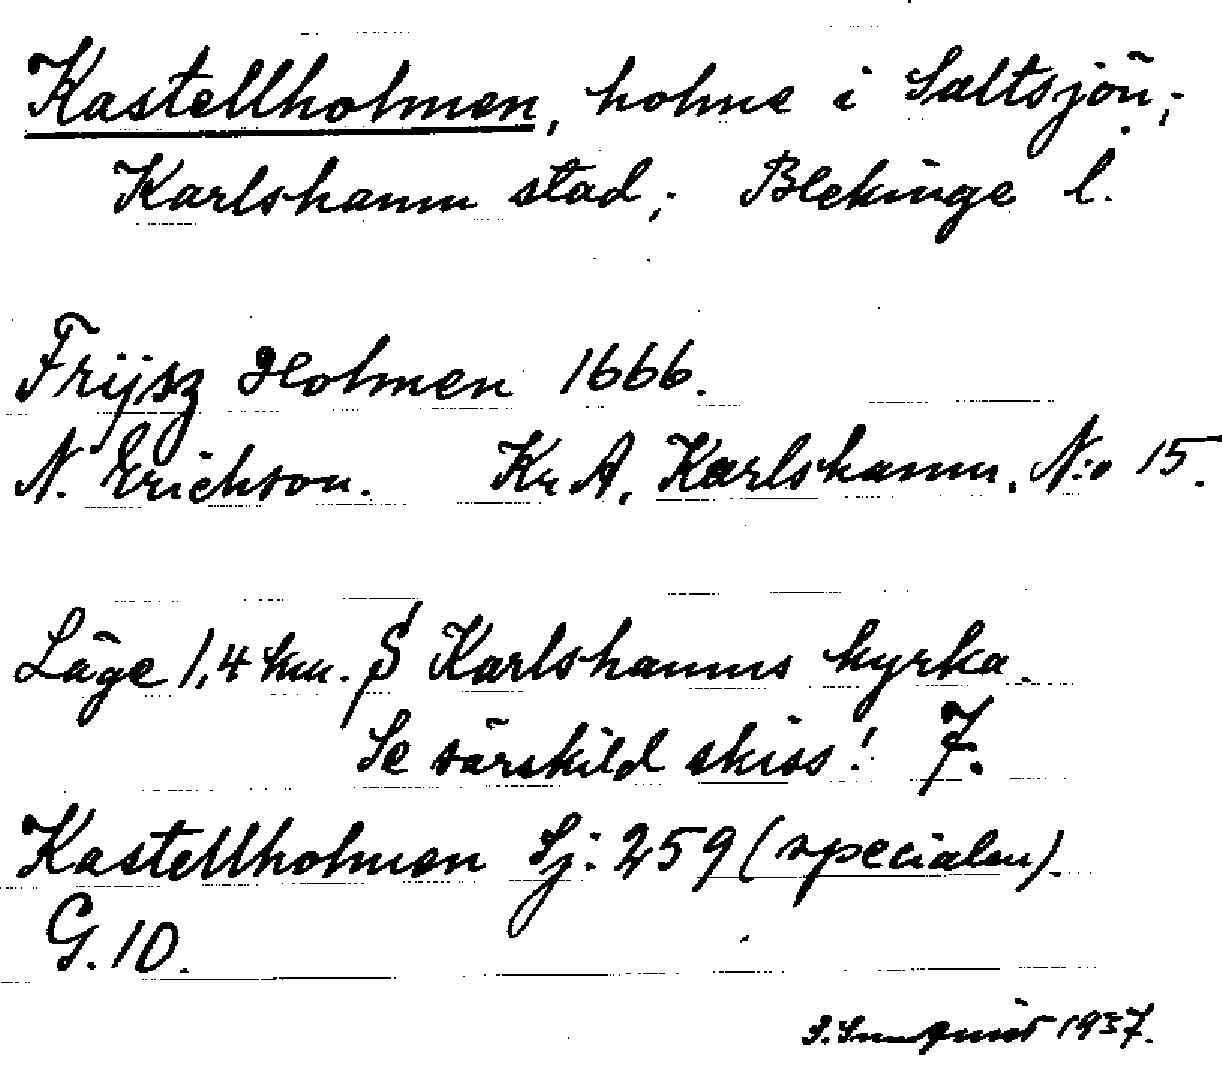 Kastellholmen, holme i Saltsjön;
Karlshamn stad; Blekinge l.
Frijsz Holmen 1666.
N. Erichson. Kr A, Karlshamn, N:o 15.
Läge 1,4 km. S Karlshamns kyrka.
Se särskild skiss! 7.
Kastellholmen Sj: 259 (specialen).
G. 10.
1937.